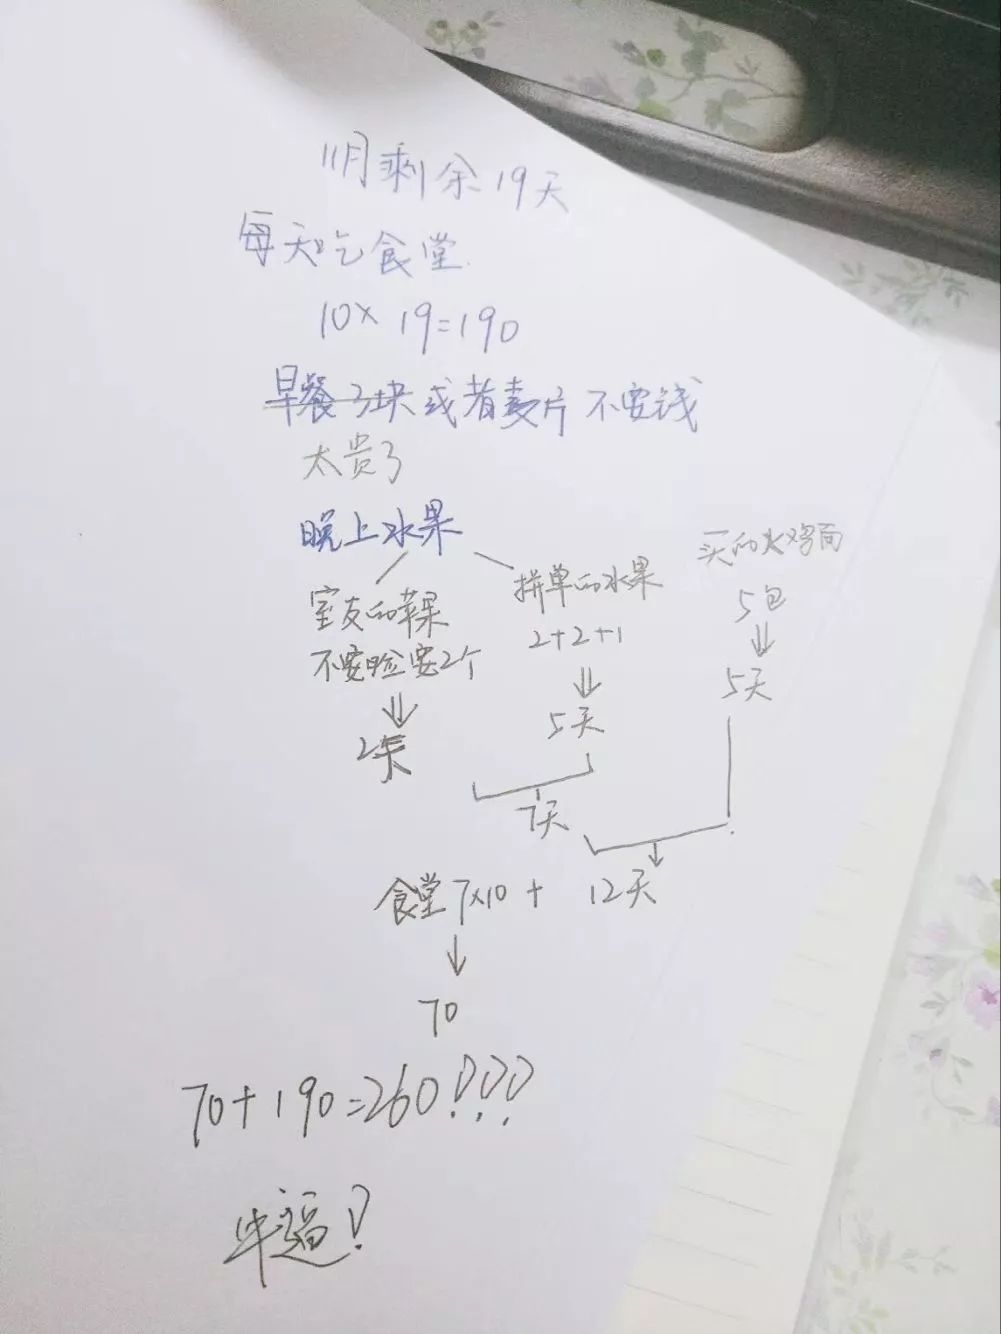 11月剩余19天
每天吃食堂
10×19=190
早餐3块或者麦片不要钱
太贵了
晚上水果
室友的苹果
不要脸要2个
⇓
2天
拼单的水果
2+2+1
⇓
5天
7天
买的火鸡面
5包
⇓
5天
食堂7×10 + 12天
↓
70
70+190=260!!!
牛逼!